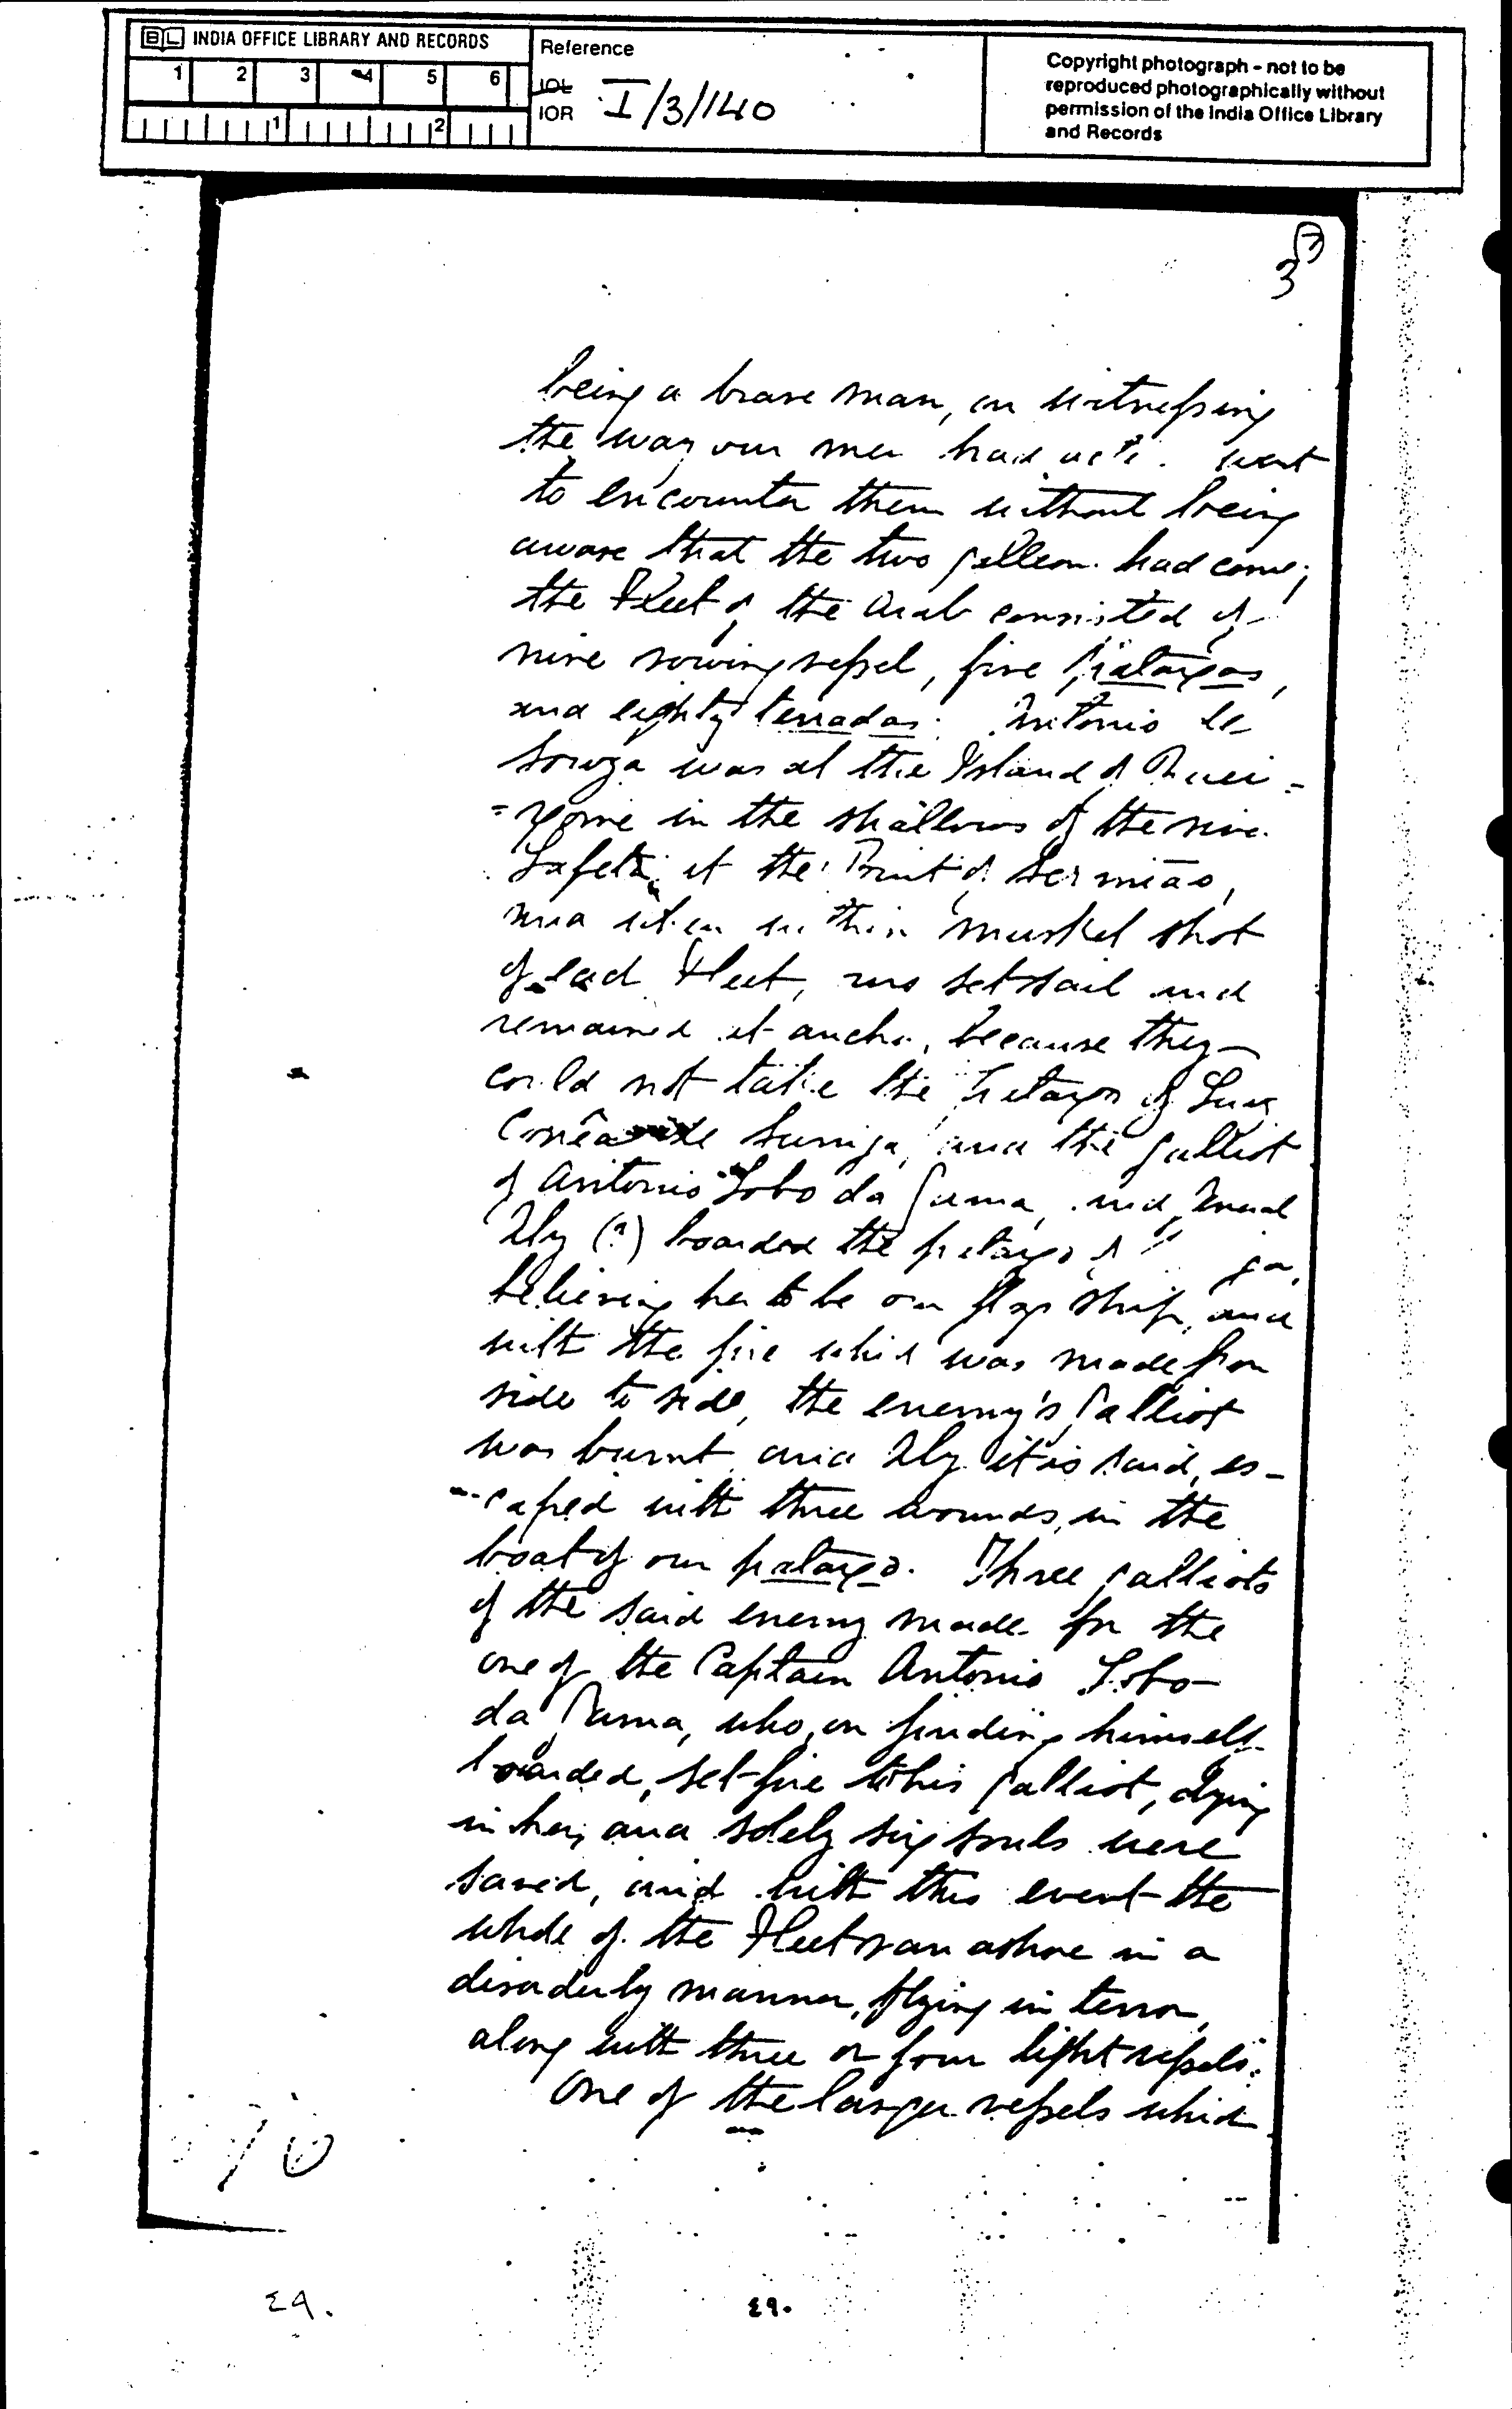 BL INDIA OFFICE LIBRARY AND RECORDS
1 2 3 4 5 6
1 2
Reference
IOL
IOR I/3/140
Copyright photograph - not to be
reproduced photographically without
permission of the India Office Library
and Records
3
being a brave man, on witnessing
the way our men had went
to encounter them without being
aware that the two had come;
the Fleet of the Arab consisted of
nine rowing vessel, five pataxos,
and eighty terradas: Antonio de
Souza was at the Island of
in the shallows of the
at the Point of
and when within musket shot
of Fleet, set sail and
remained at because they
could not take the of Luis
de and the galliot
of Antonio Lobo da Gama, and
Aly (?) boarded the
believing her to be our flag ship, and
with the fire which was made from
side to side, the enemy's galliot
was burnt and Aly it is said, es-
-caped with three wounds, in the
boat of our pataxo. Three galliots
of the said enemy made for the
one of the Captain Antonio Lobo
da Gama, who, on finding himself
boarded, set fire to his galliot, dying
in her, and solely six souls were
saved, and with this event the
whole of the Fleet ran ashore in a
disorderly manner, flying in terror,
along with three or four light vessels.
One of the larger vessels which
٤٩٠
٤٩٠